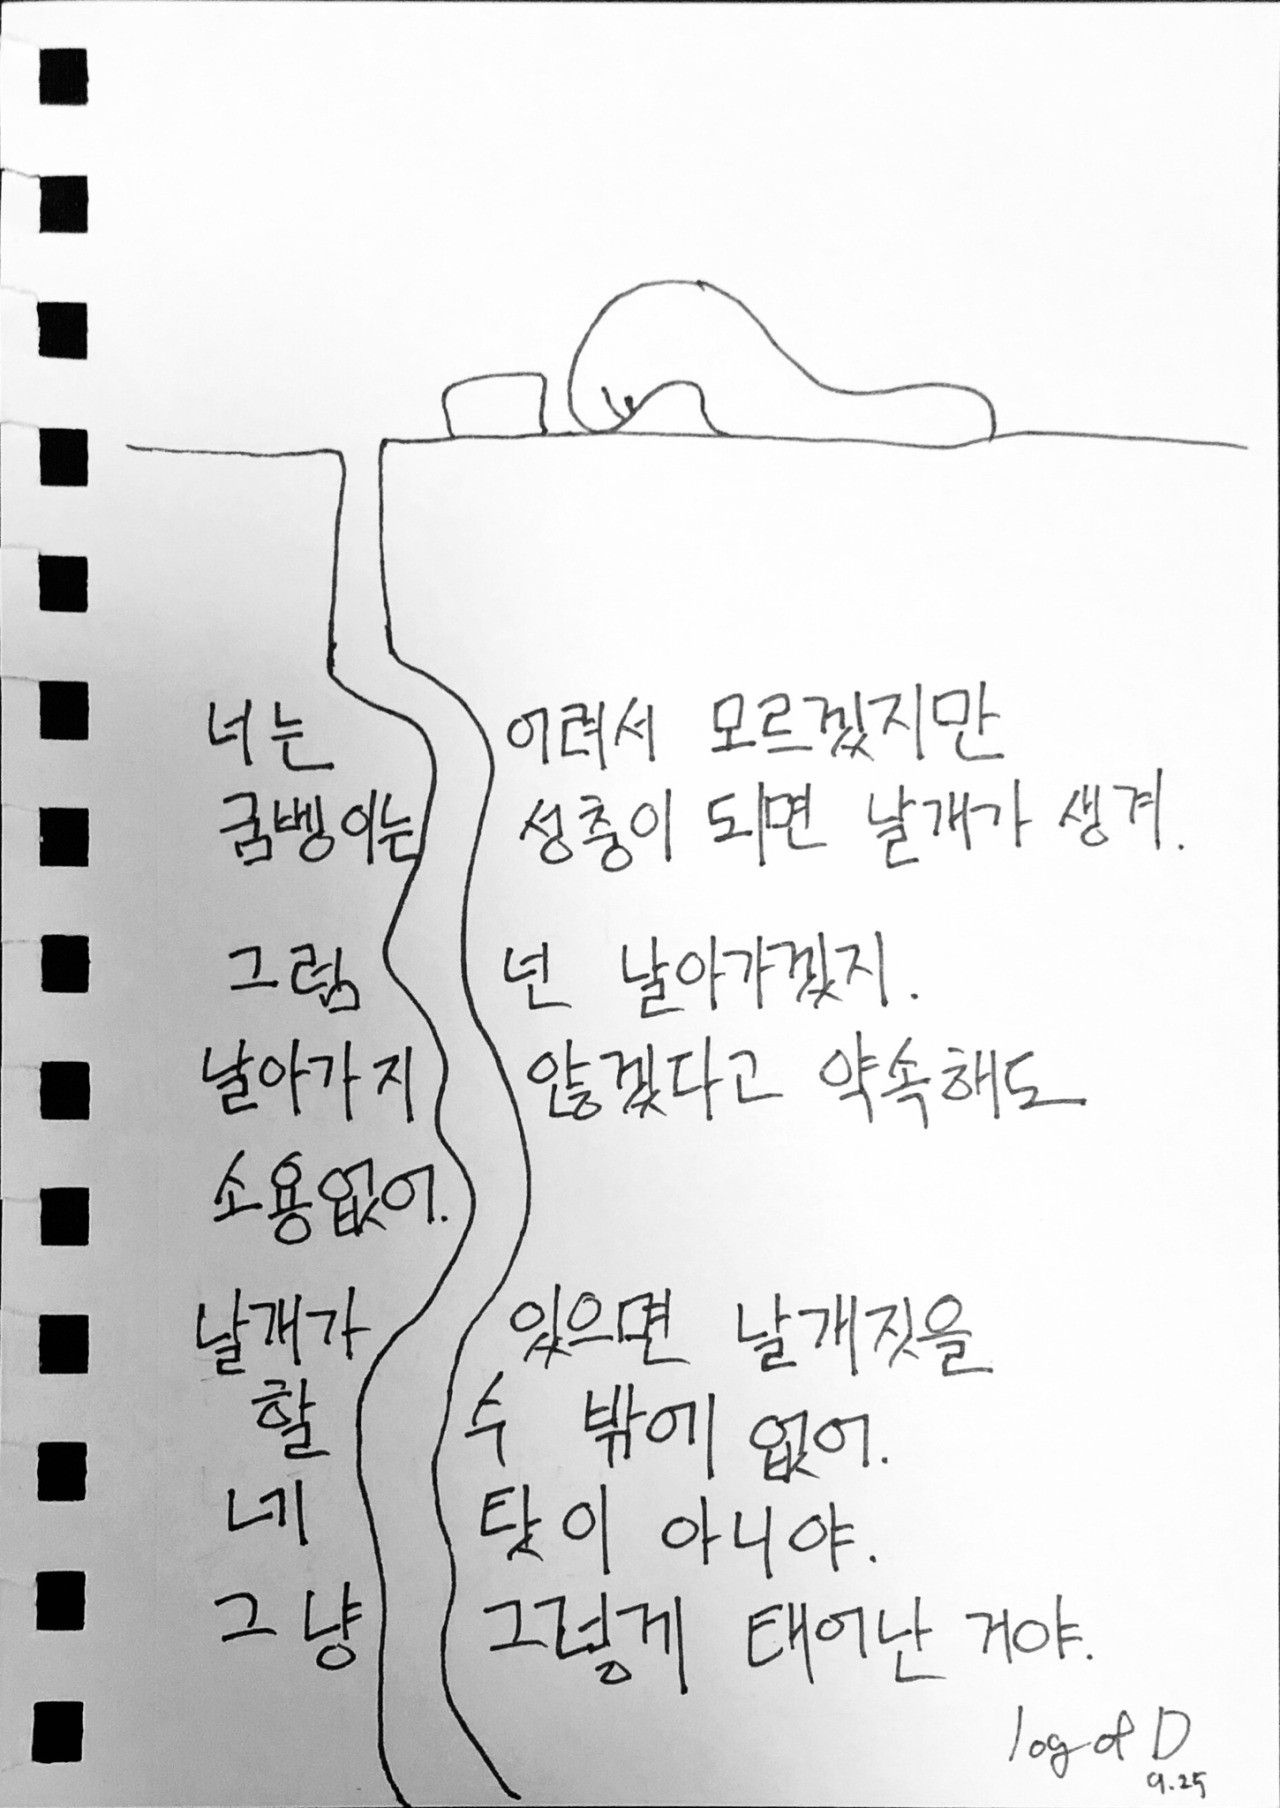 너는 어려서 모르겠지만
굼벵이는 성충이 되면 날개가 생겨.
그럼 넌 날아가겠지.
날아가지 않겠다고 약속해도
소용없어.
날개가 있으면 날개짓을
할 수 밖에 없어.
네 탓이 아니야.
그냥 그렇게 태어난 거야.
log of D
9.25